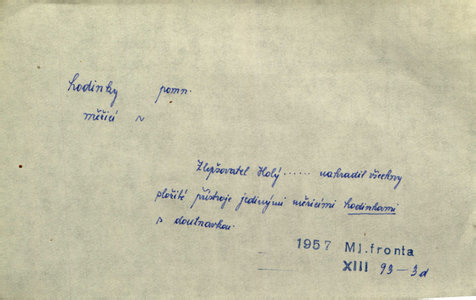 hodinky pomn.
měřicí ~
Zlepšovatel Holý ...... nahradil všechny
složité přístroje jedinými měřicími hodinkami
s doutnavkou.
1957 Ml. fronta
XIII 93-3d